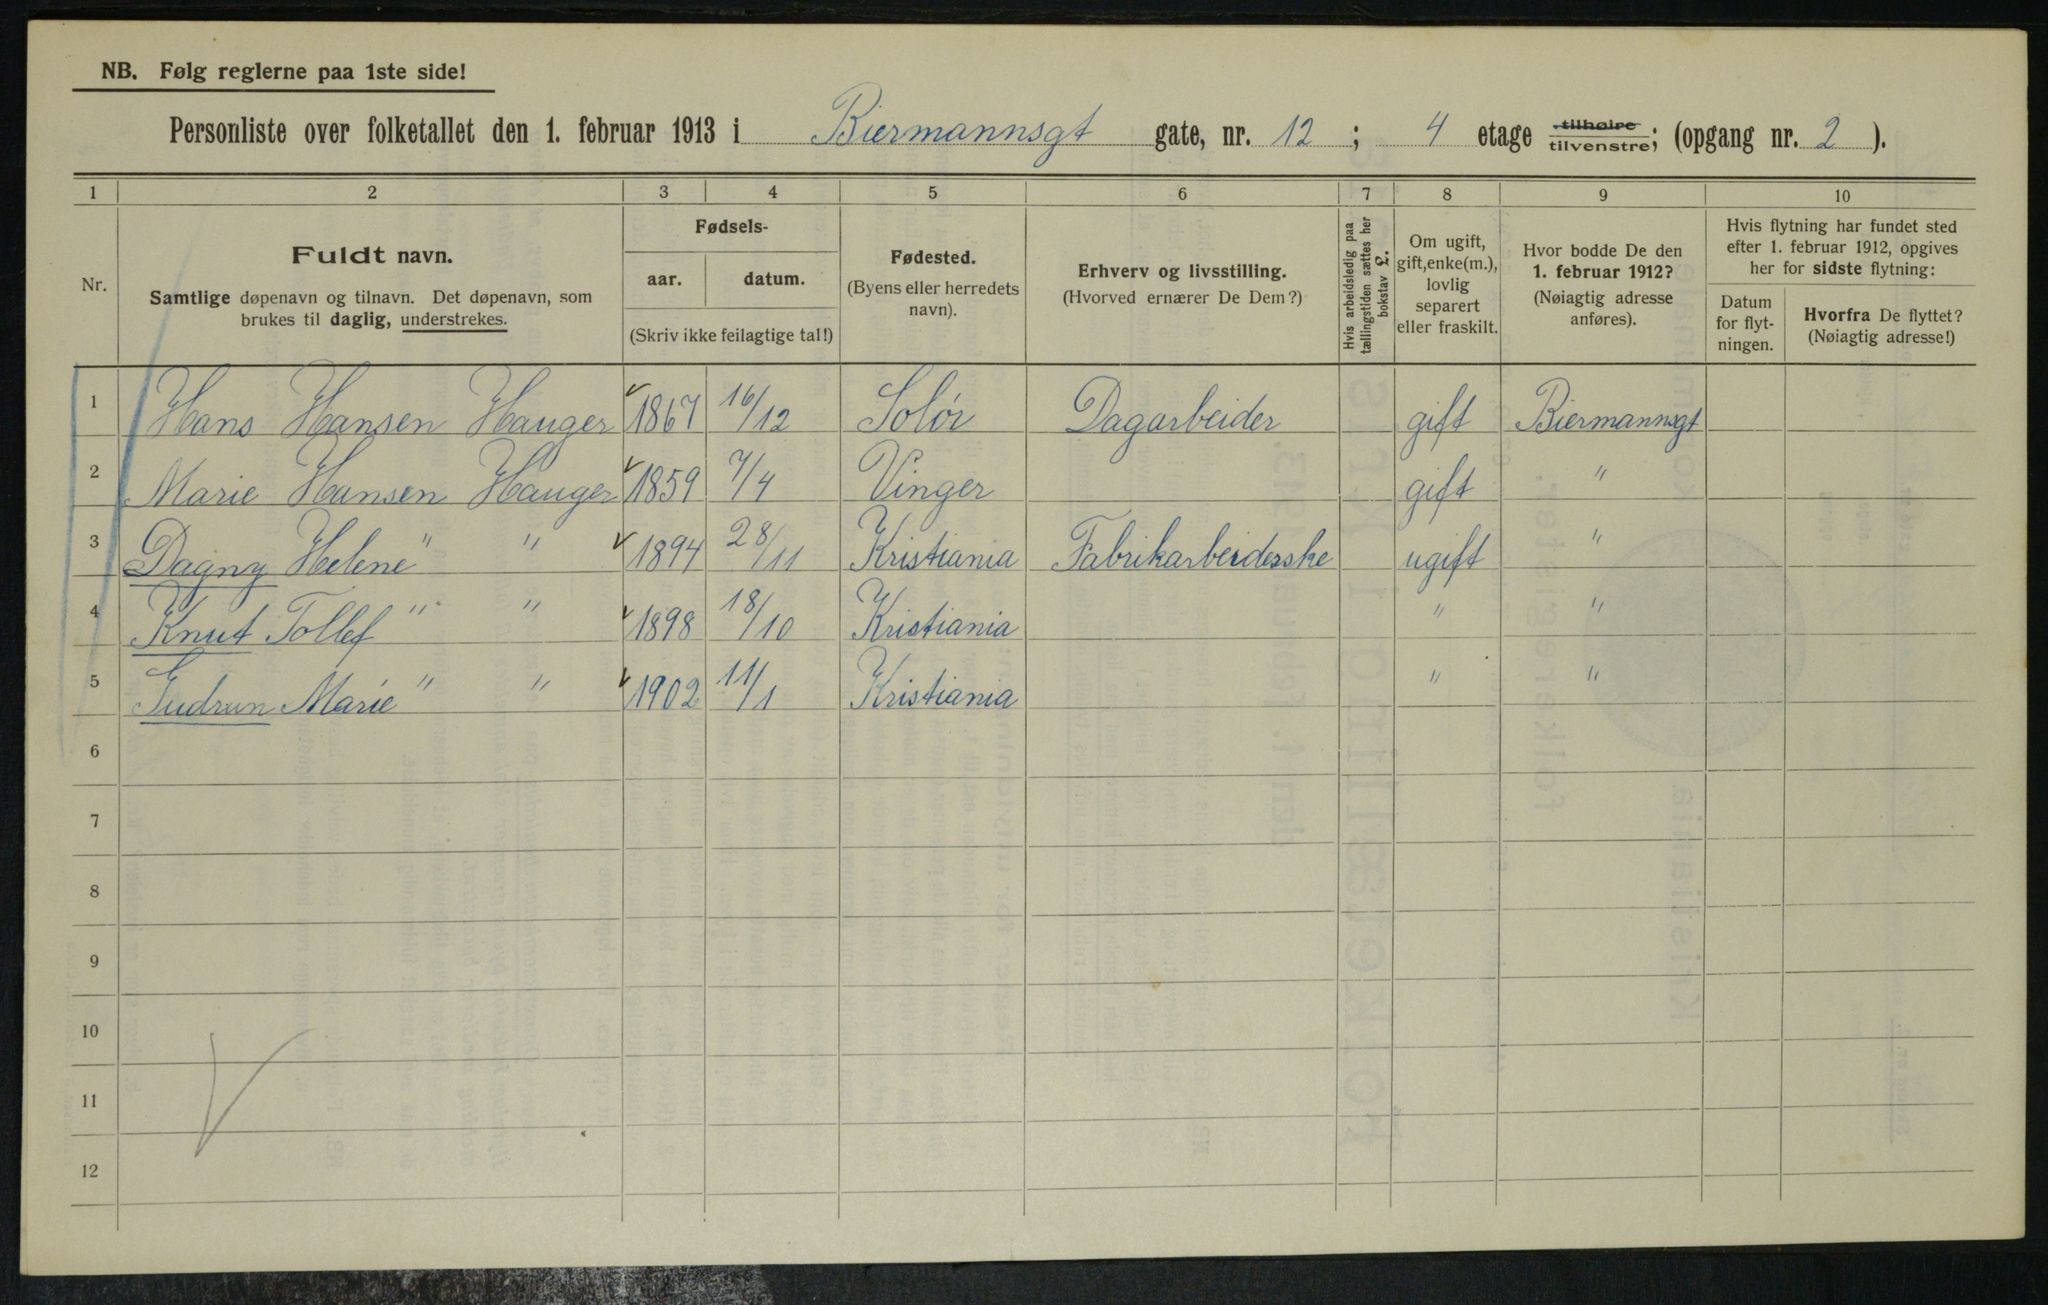 NB. Følg reglerne paa 1ste side!
Personliste over folketallet den 1. februar 1913 i Biermannsgt gate, nr. 12 ; 4 etage tilhøire tilvenstre; (opgang nr. 2 ).
1 2 3 4 5 6 7 8 9 10
Nr.
Fuldt navn.
Samtlige døpenavn og tilnavn. Det døpenavn, som
brukes til daglig, understrekes.
Fødsels-
aar. datum.
(Skriv ikke feilagtige tal!)
Fødested.
(Byens eller herredets
navn).
Erhverv og livsstilling.
(Hvorved ernærer De Dem?)
Hvis arbeidsledig paa
tællingstiden sættes her
bokstav L.
Om ugift,
gift, enke(m.),
lovlig
separert
eller fraskilt.
Hvor bodde De den
1. februar 1912?
(Nøiagtig adresse
anføres).
Hvis flytning har fundet sted
efter 1. februar 1912, opgives
her for sidste flytning:
Datum
for flyt-
ningen.
Hvorfra De flyttet?
(Nøiagtig adresse!)
1 Hans Hansen Hauger 1867 16/12 Solør Dagarbeider gift Biermannsgt
2 Marie Hansen Hauger 1859 7/4 Vinger gift "
3 Dagny Helene " " 1894 28/11 Kristiania Fabrikarbeiderske ugift "
4 Knut Tollef " " 1898 18/10 Kristiania " "
5 Gudrun Marie " " 1902 11/1 Kristiania " "
6
7
8
9
10
11
12